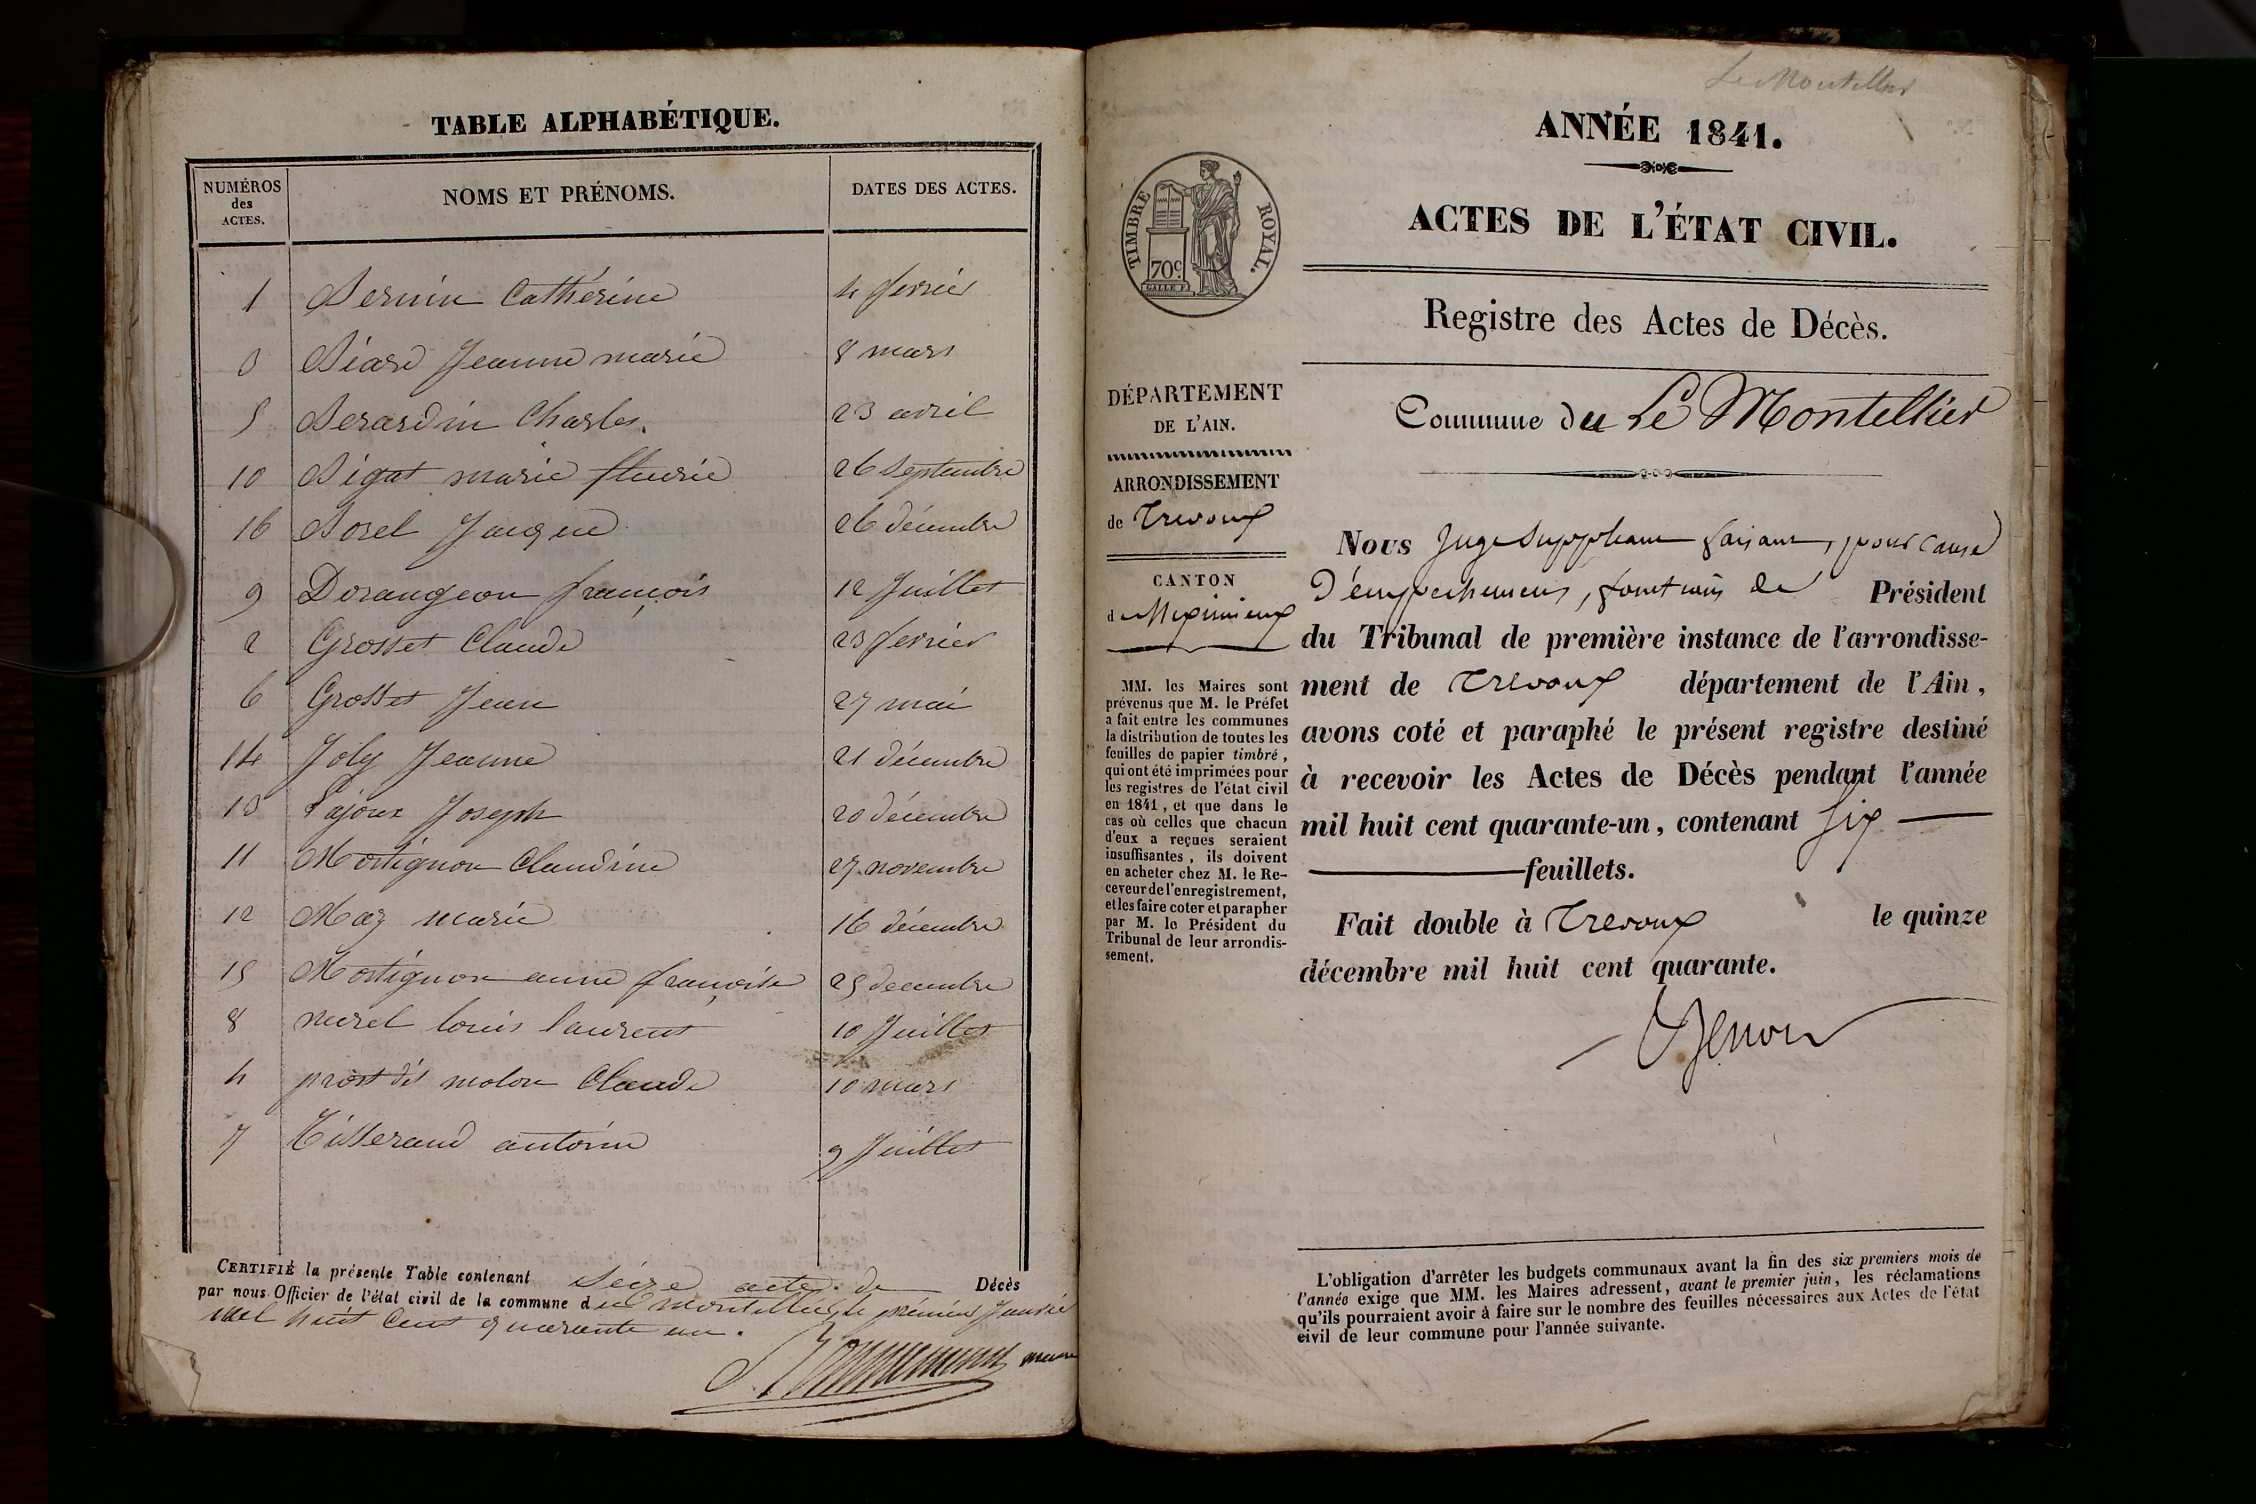 TABLE ALPHABÉTIQUE.
NUMÉROS
des
ACTES.
NOMS ET PRÉNOMS.
DATES DES ACTES.
1 Bernin Cathérine 4 fevrier
3 Biard Jeanne marie 8 mars
5 Berardin Charles 23 avril
10 Bigot marie fleurie 26 septembre
16 Borel Jacques 26 décembre
9 Dorangeon françois 12 Juillet
2 Grosset Claude 23 fevrier
6 Grosset Jean 27 mai
14 Joly Jeanne 21 décembre
13 Pajoux Joseph 20 décembre
11 Mortignon Claudine 27 novembre
12 Maz marie 16 décembre
15 Mortignon anne françoise 25 decembre
8 murel louis laurent 10 Juillet
4 prost dit molon Claude 10 mars
7 Tisserand antoine 9 Juillet
CERTIFIÉ la présente Table contenant Seize actes de Décès
par nous Officier de l'état civil de la commune du montellier le premier Janvier
mil huit Cent quarante un.
maire
Le Montellier
ANNÉE 1841.
TIMBRE ROYAL.
70c.
ACTES DE L'ÉTAT CIVIL.
Registre des Actes de Décès.
Commune du Le Montellier
DÉPARTEMENT
DE L'AIN.
ARRONDISSEMENT
de Trevoux
CANTON
de Meximieux
MM. les Maires sont
prévenus que M. le Préfet
a fait entre les communes
la distribution de toutes les
feuilles de papier timbré,
qui ont été imprimées pour
les registres de l'état civil
en 1841, et que dans le
cas où celles que chacun
d'eux a reçues seraient
insuffisantes, ils doivent
en acheter chez M. le Re-
ceveur de l'enregistrement,
et les faire coter et parapher
par M. le Président du
Tribunal de leur arrondis-
sement.
Nous Juge Suppléant faisant, pour cause
D'empechement, fonctions de Président
du Tribunal de première instance de l'arrondisse-
ment de Trevoux département de l'Ain,
avons coté et paraphé le présent registre destiné
à recevoir les Actes de Décès pendant l'année
mil huit cent quarante-un, contenant six
feuillets.
Fait double à Trevoux le quinze
décembre mil huit cent quarante.
L'obligation d'arrêter les budgets communaux avant la fin des six premiers mois de
l'année exige que MM. les Maires adressent, avant le premier juin, les réclamations
qu'ils pourraient avoir à faire sur le nombre des feuilles nécessaires aux Actes de l'état
civil de leur commune pour l'année suivante.